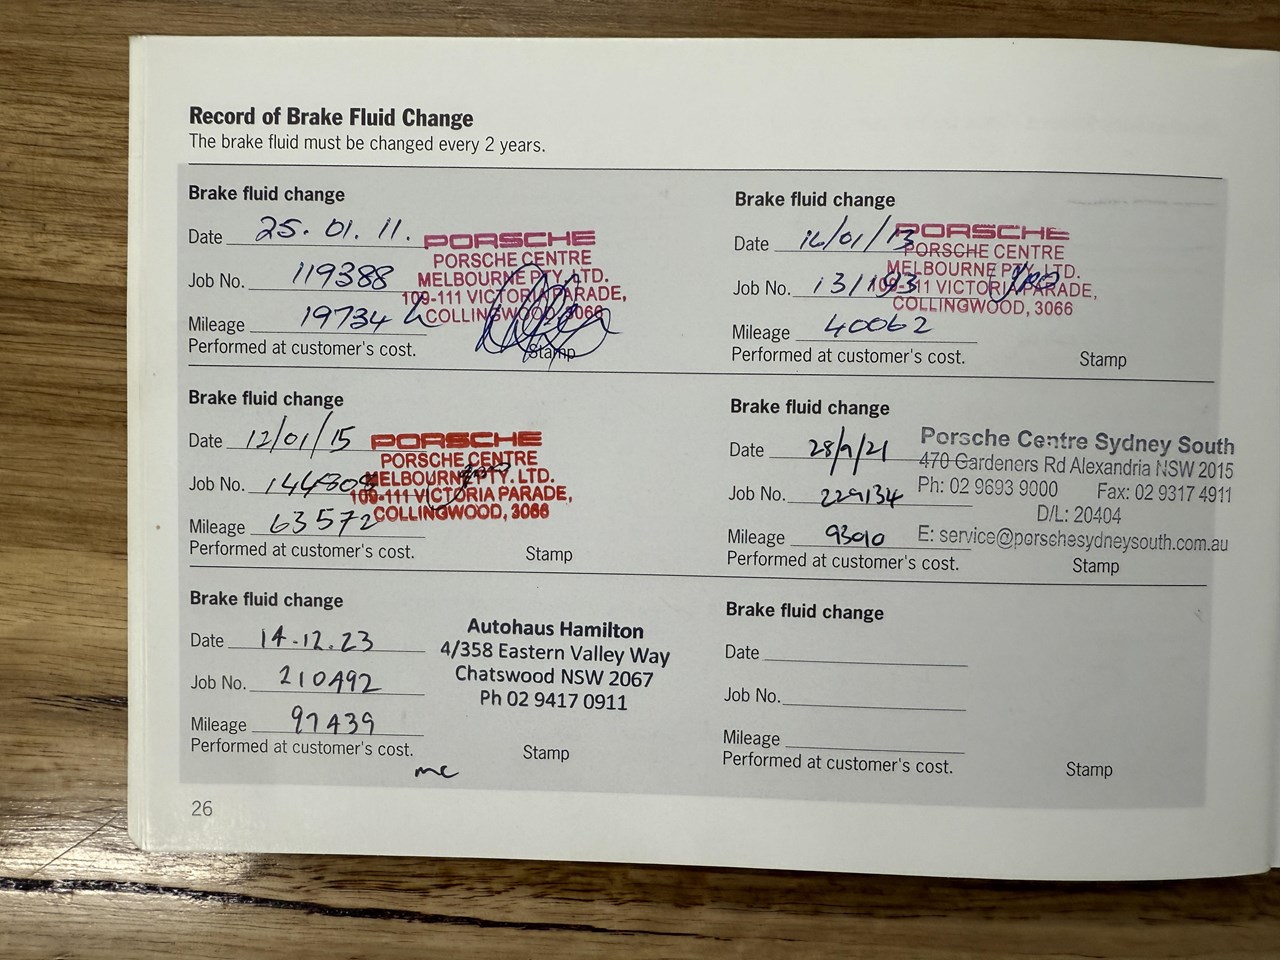 Record of Brake Fluid Change
The brake fluid must be changed every 2 years.
Brake fluid change
Date 25.01.11.
Job No. 119388
Mileage 19734
Performed at customer's cost.
PORSCHE
PORSCHE CENTRE
MELBOURNE PTY. LTD.
109-111 VICTORIA PARADE,
COLLINGWOOD, 3066
Stamp
Brake fluid change
Date 16/01/13
Job No. 13/1
Mileage 40062
Performed at customer's cost.
PORSCHE
PORSCHE CENTRE
MELBOURNE PTY. LTD.
109-111 VICTORIA PARADE,
COLLINGWOOD, 3066
Stamp
Brake fluid change
Date 12/01/15
Job No.
Mileage 63572
Performed at customer's cost.
PORSCHE
PORSCHE CENTRE
MELBOURNE PTY. LTD.
109-111 VICTORIA PARADE,
COLLINGWOOD, 3066
Stamp
Brake fluid change
Date 28/9/21
Job No. 229134
Mileage 93010
Performed at customer's cost.
Porsche Centre Sydney South
470 Gardeners Rd Alexandria NSW 2015
Ph: 02 9693 9000 Fax: 02 9317 4911
D/L: 20404
E: service@porschesydneysouth.com.au
Stamp
Brake fluid change
Date 14.12.23
Job No. 210492
Mileage 97439
Performed at customer's cost.
mc
Autohaus Hamilton
4/358 Eastern Valley Way
Chatswood NSW 2067
Ph 02 9417 0911
Stamp
Brake fluid change
Date
Job No.
Mileage
Performed at customer's cost.
Stamp
26